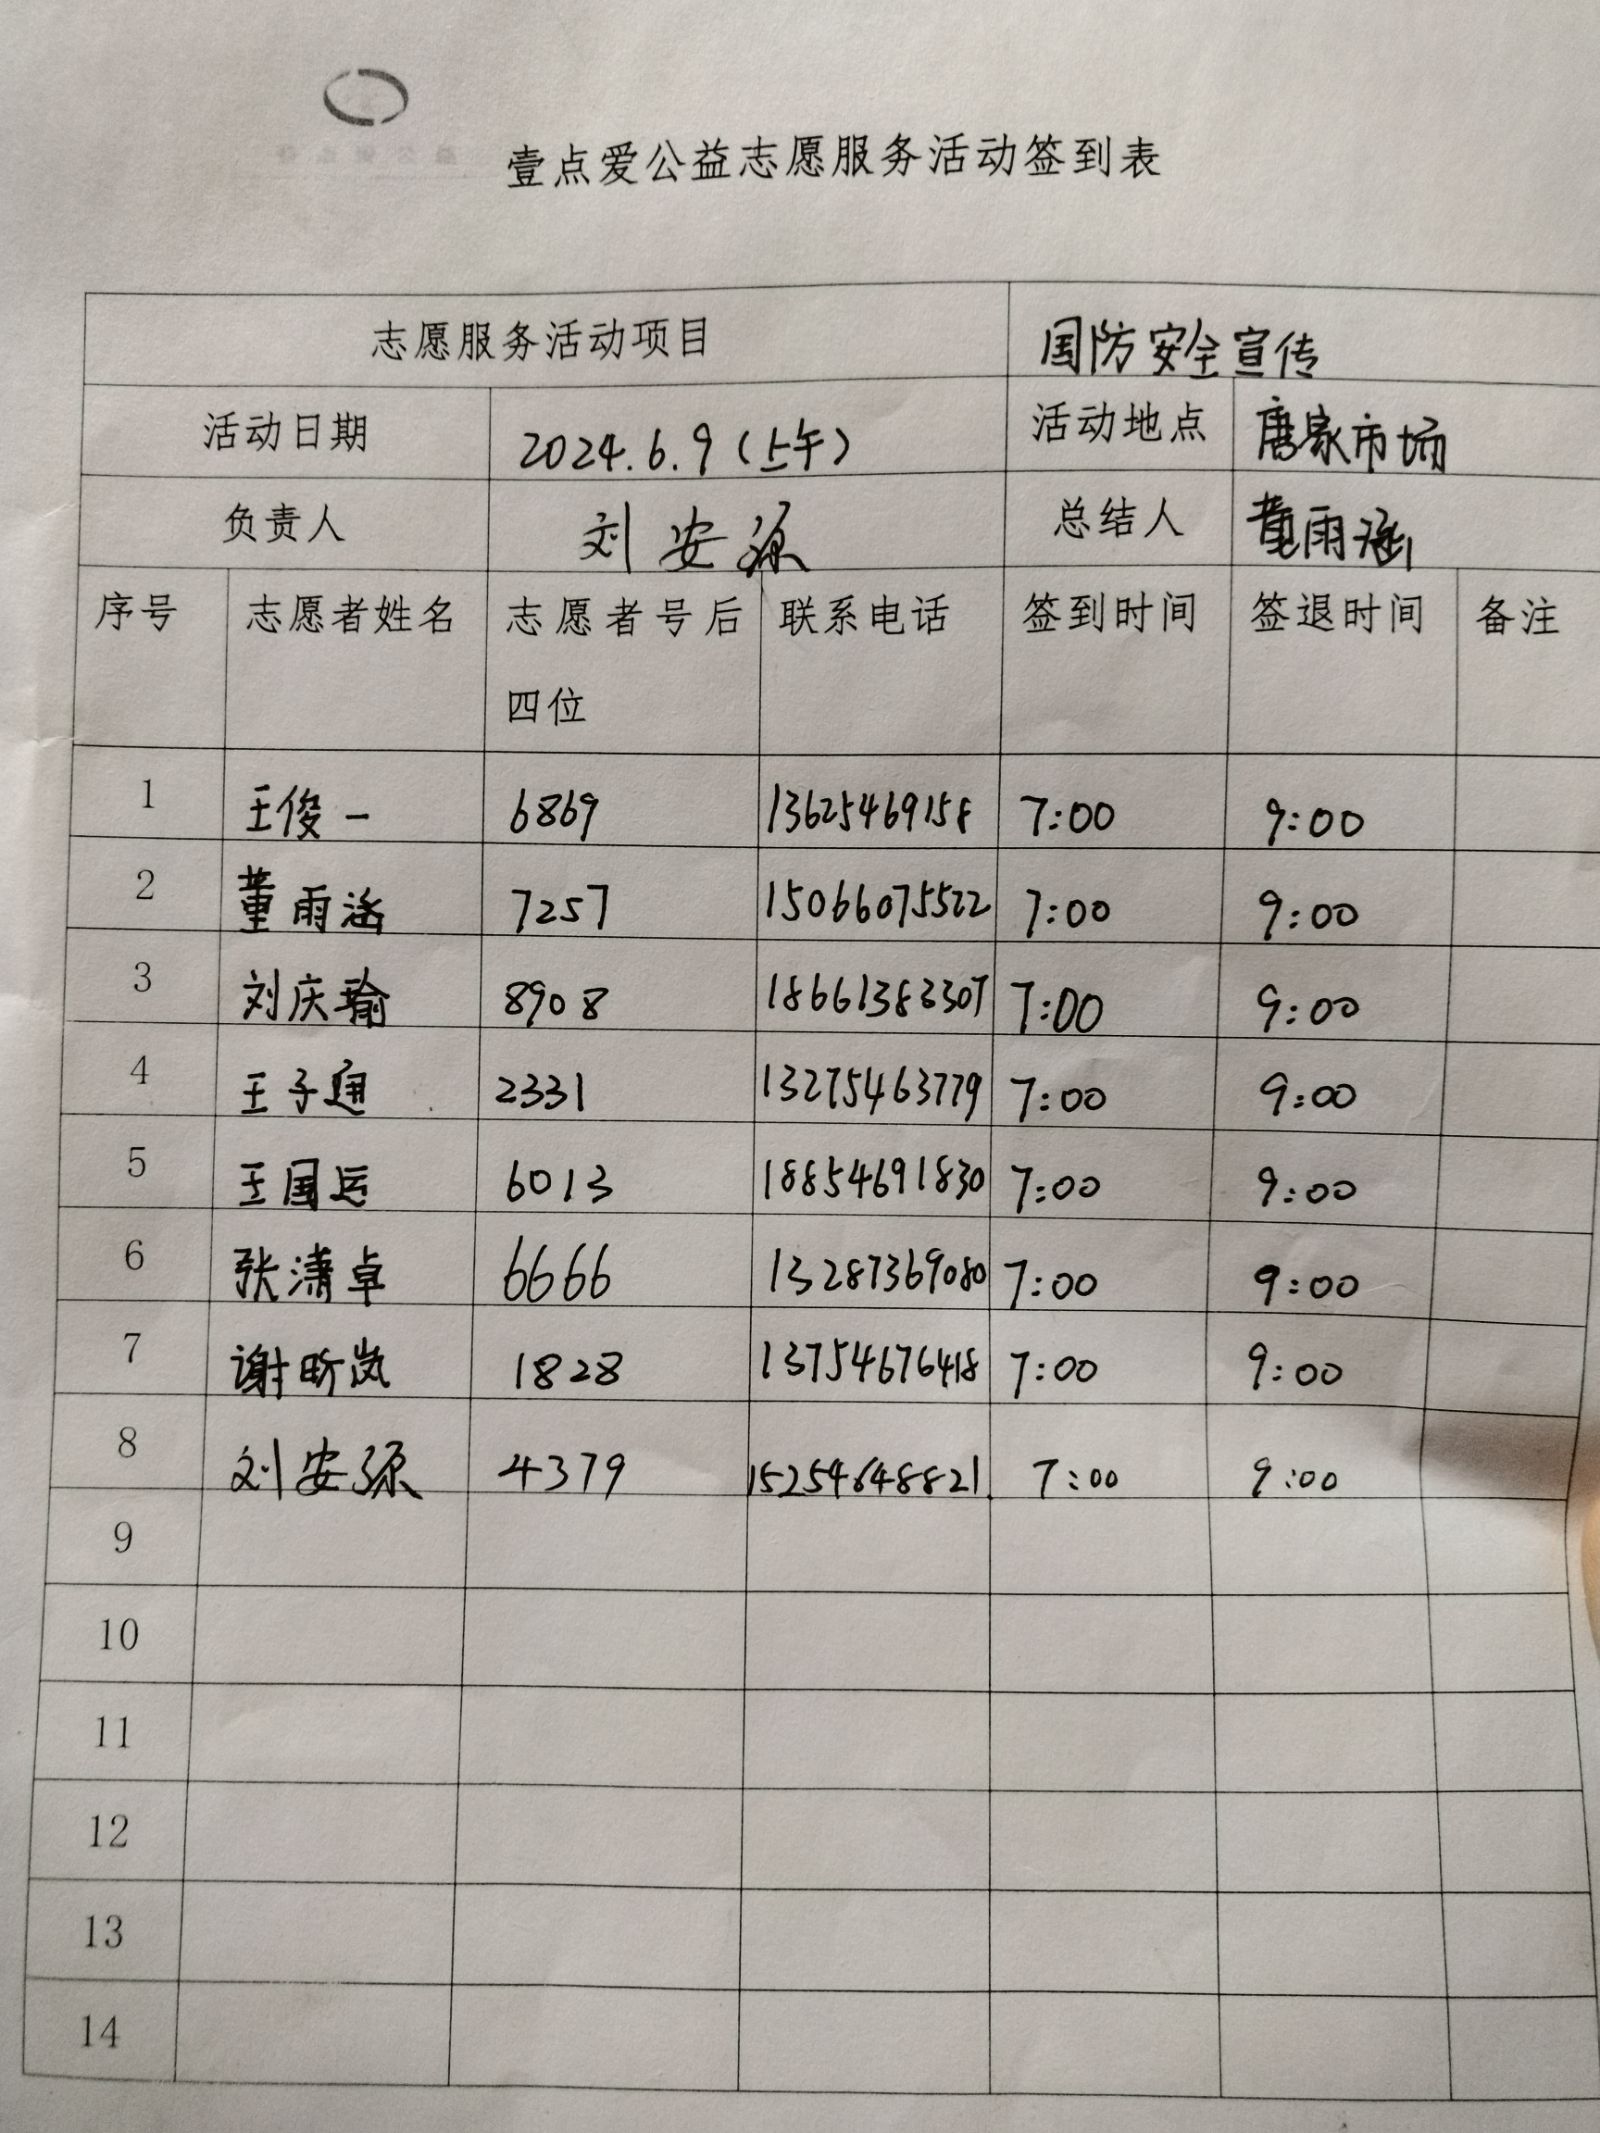 壹点爱公益志愿服务活动签到表
志愿服务活动项目 国防安全宣传
活动日期 2024.6.9(上午) 活动地点 唐家市场
负责人 刘安源 总结人 董雨涵
序号 志愿者姓名 志愿者号后 联系电话 签到时间 签退时间 备注
四位
1 王俊一 6869 13625469158 7:00 9:00
2 董雨涵 7257 15066075522 7:00 9:00
3 刘庆瑜 8908 18661383307 7:00 9:00
4 王子 2331 13275463779 7:00 9:00
5 王国运 6013 18854691830 7:00 9:00
6 张潇卓 6666 13287369080 7:00 9:00
7 谢昕岚 1828 13754676418 7:00 9:00
8 刘安源 4379 15254648821 7:00 9:00
9
10
11
12
13
14